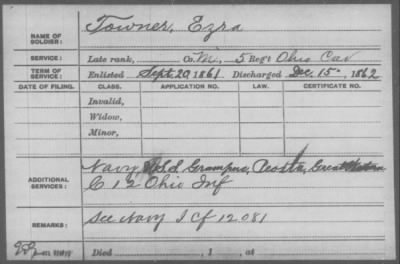 Towner, Ezra
NAME OF SOLDIER:
SERVICE: Late rank, Co. M, 5 Reg't Ohio Cav
TERM OF SERVICE: Enlisted Sept. 20 1861, Discharged Dec 15, 1862
DATE OF FILING. CLASS. APPLICATION NO. LAW. CERTIFICATE NO.
Invalid,
Widow,
Minor,
Navy, U.S.S. Grampus, Acosta, Great Western
ADDITIONAL SERVICES: C 12 Ohio Inf
REMARKS: See Navy I Cf 12081
Died , 1 , at